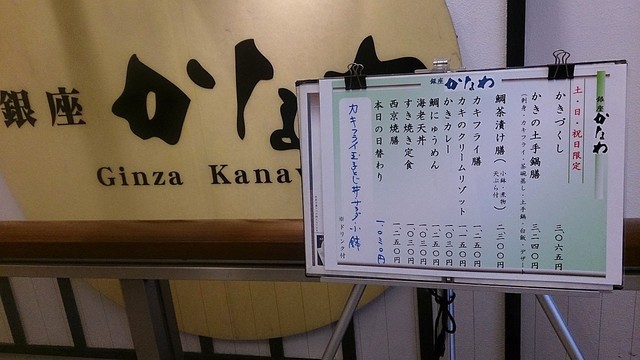 銀座 かなわ
Ginza Kanaw
銀座 かなわ
銀座 かなわ
土・日・祝日限定
かきづくし 三、〇六五円
(刺身・カキフライ・茶碗蒸し・土手鍋・白飯・デザート)
かきの土手鍋膳 三、二四〇円
鯛茶漬け膳(小鉢・煮物・天ぷら付) 二、三〇〇円
カキフライ膳 一、二五〇円
カキのクリームリゾット 一、二五〇円
かきカレー 一、〇三〇円
鯛にゅうめん 一、二五〇円
海老天丼 一、〇三〇円
すき焼き定食 一、〇三〇円
西京焼膳 一、二五〇円
本日の日替わり 一、〇三〇円
カキフライ玉子とじ丼 サラダ 小鉢
※ドリンク付